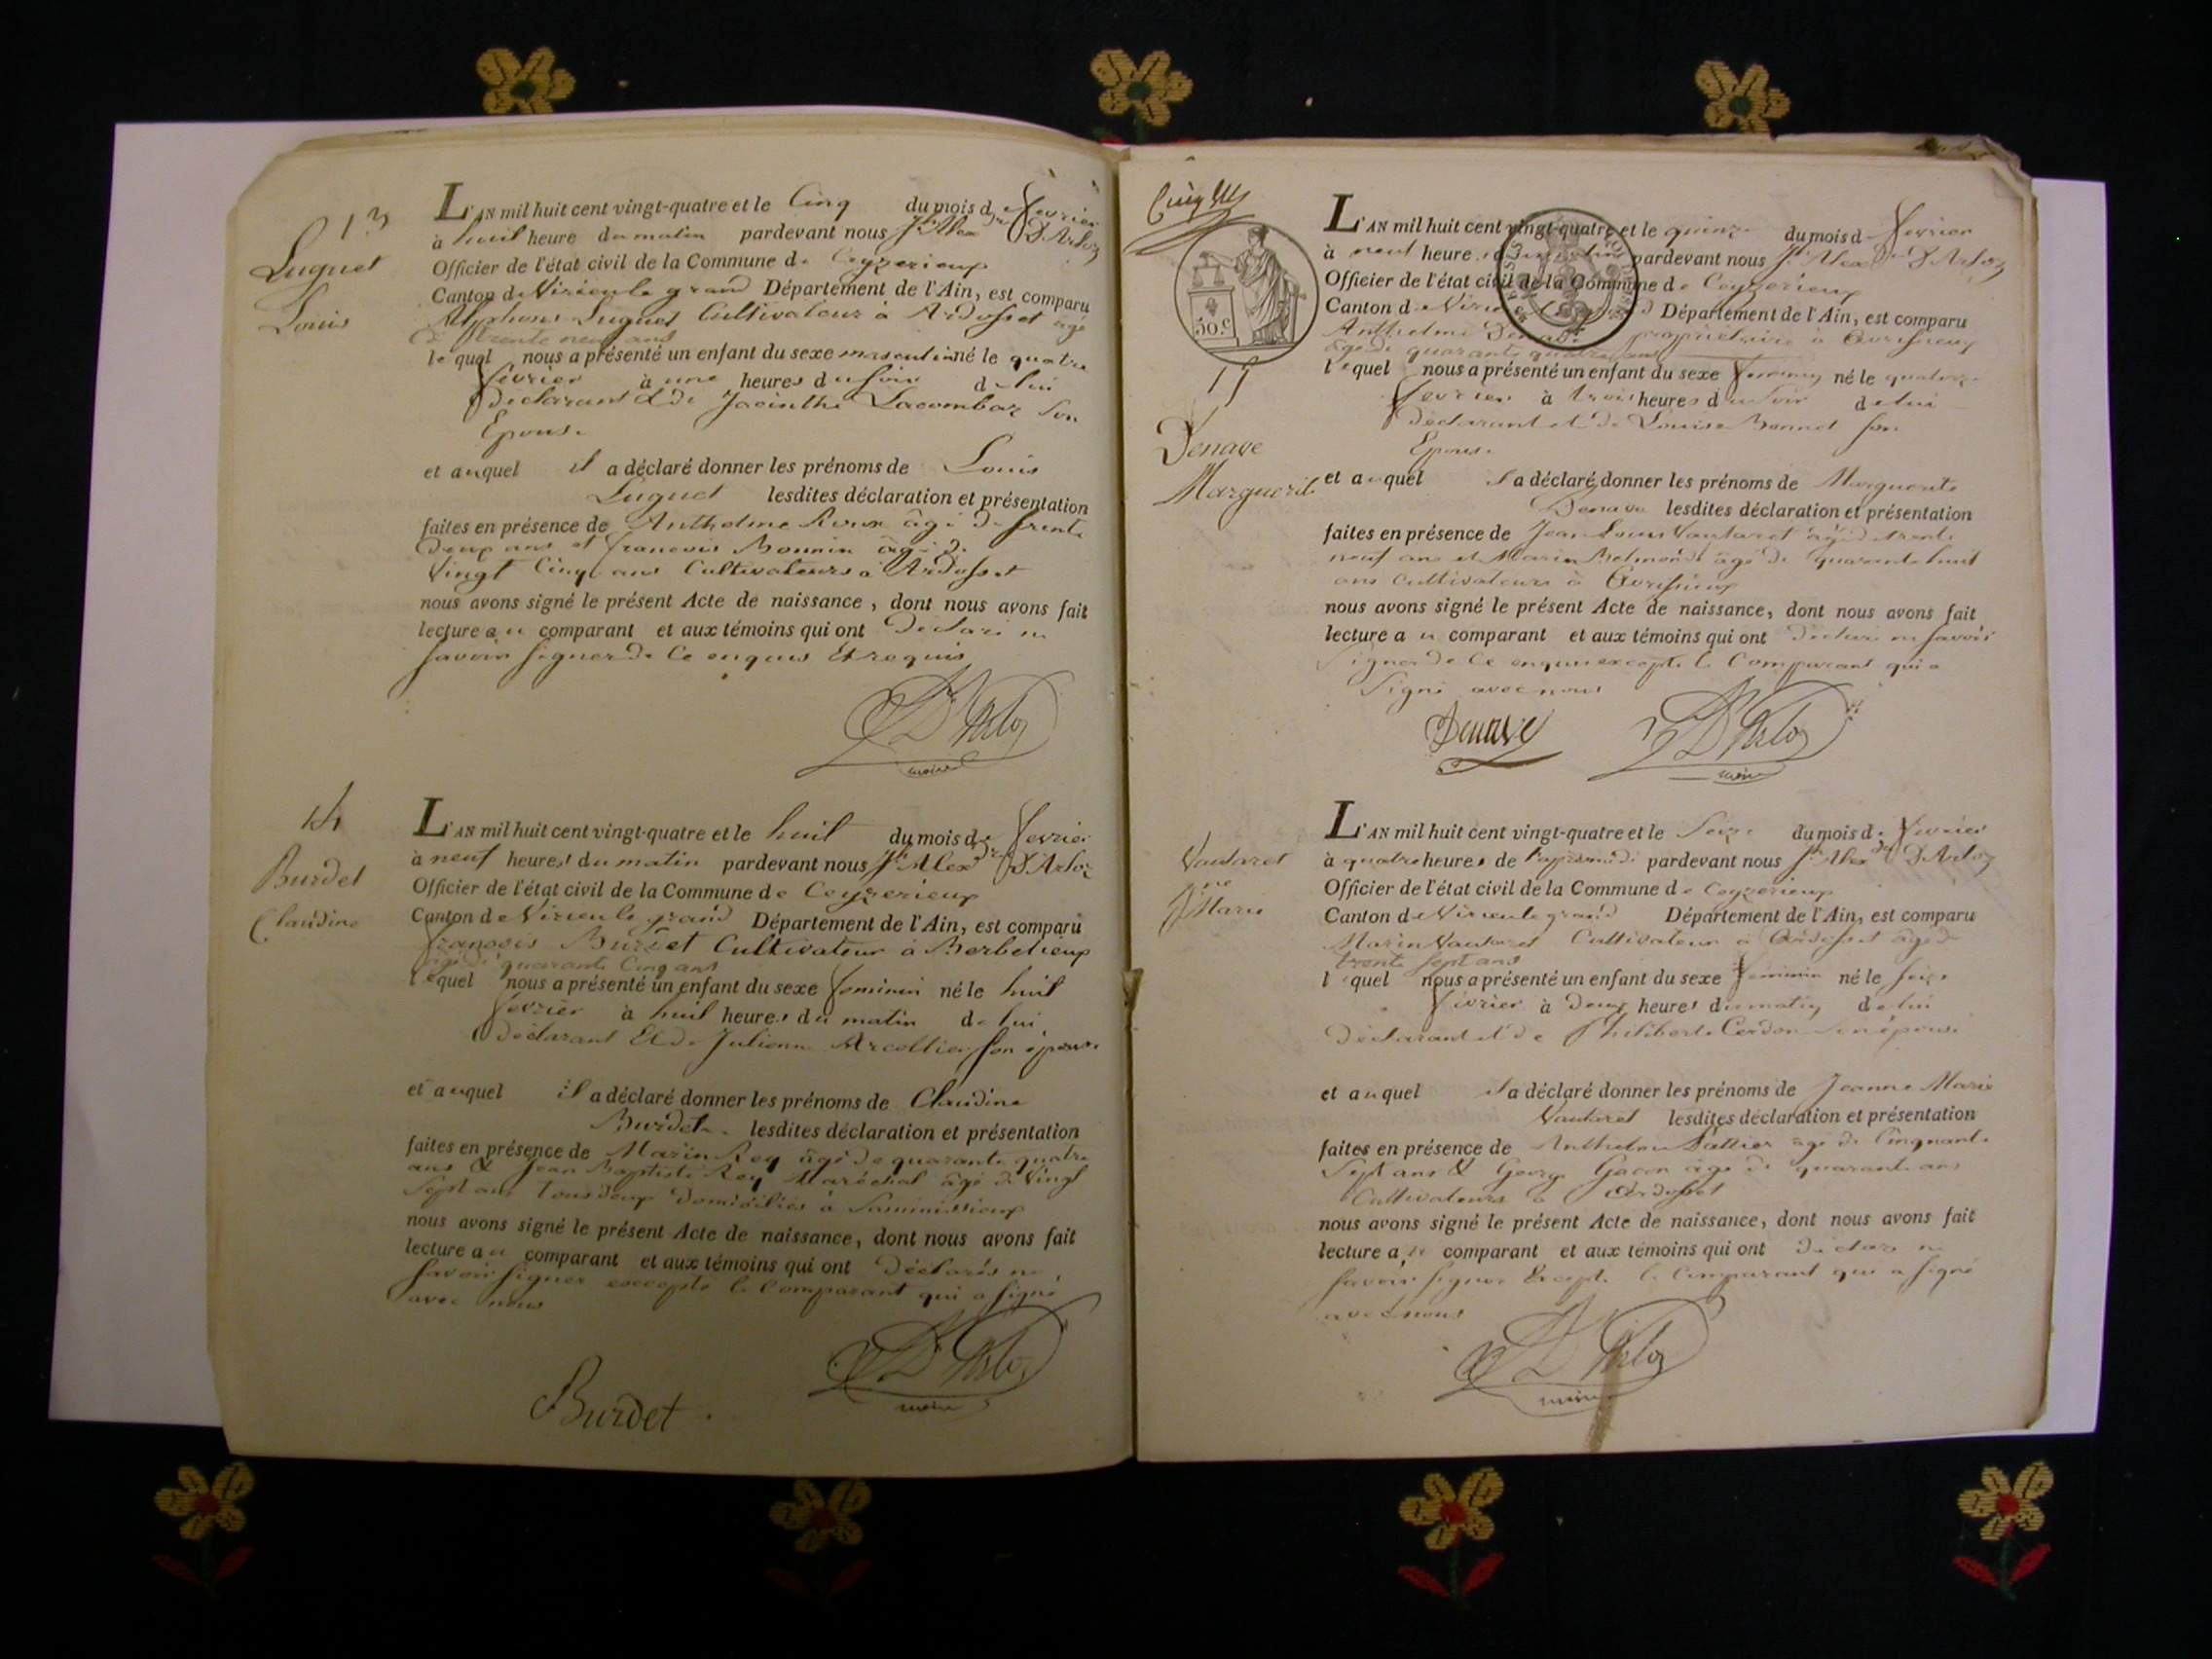 13
Luguet
Louis
L'AN mil huit cent vingt-quatre et le Cinq du mois de fevrier
à huit heure du matin pardevant nous Jh Alexdre D'Arloz
Officier de l'état civil de la Commune de Ceyzerieux
Canton de Virieu le grand Département de l'Ain, est comparu
Alphonse Luguet Cultivateur à Ardosset âgé
de trente neuf ans
le quel nous a présenté un enfant du sexe masculin né le quatre
fevrier à une heures du soir de lui
déclarant & de Jacinthe Lacombaz son
Epouse
et auquel il a déclaré donner les prénoms de Louis
Luguet lesdites déclaration et présentation
faites en présence de Anthelme Roux âgé de trente
deux ans et francois Bonnin âgé de
Vingt Cinq ans Cultivateurs à Ardosset
nous avons signé le présent Acte de naissance, dont nous avons fait
lecture au comparant et aux témoins qui ont déclaré ne
savoir signer de Ce enquis Et requis
D'Arloz
maire
14
Burdet
Claudine
L'AN mil huit cent vingt-quatre et le huit du mois de fevrier
à neuf heures du matin pardevant nous Jh Alexdre D'Arloz
Officier de l'état civil de la Commune de Ceyzerieux
Canton de Virieu le grand Département de l'Ain, est comparu
françois Burdet Cultivateur à Aerbelieux
âgé de quarante Cinq ans
lequel nous a présenté un enfant du sexe feminin né le huit
fevrier à huit heures du matin de lui
déclarant Et de Julienne Arcollier son épouse
et auquel il a déclaré donner les prénoms de Claudine
Burdet lesdites déclaration et présentation
faites en présence de Marin Rey âgé de quarante quatre
ans & Jean Baptiste Rey Maréchal âgé de Vingt
Sept ans tous deux domiciliés à
nous avons signé le présent Acte de naissance, dont nous avons fait
lecture au comparant et aux témoins qui ont déclarés ne
savoir signer excepté le Comparant qui a signé
avec nous
D'Arloz
maire
Burdet
50.c
15
Denave
Marguerite
L'AN mil huit cent vingt-quatre et le quinze du mois de fevrier
à neuf heure pardevant nous Jh Alexdre D'Arloz
Officier de l'état civil de la Commune de Ceyzerieux
Canton de Virieu Département de l'Ain, est comparu
Anthelme Denave propriétaire à Avrissieux
âgé de quarante quatre ans
lequel nous a présenté un enfant du sexe feminin né le quatorze
fevrier à trois heures du soir de lui
déclarant et de Louise Bonnet son
Epouse
et auquel il a déclaré donner les prénoms de Marguerite
Denave lesdites déclaration et présentation
faites en présence de Jean Louis Vautaret âgé de trente
neuf ans et Marin Belmondi âgé de quarante huit
ans Cultivateurs à Avrissieux
nous avons signé le présent Acte de naissance, dont nous avons fait
lecture au comparant et aux témoins qui ont déclaré ne savoir
signer de Ce enquis excepté le Comparant qui a
signé avec nous
Denave
D'Arloz
maire
Vautaret
Jne Marie
L'AN mil huit cent vingt-quatre et le Seize du mois de fevrier
à quatre heures de l'apremidi pardevant nous Jh Alexdre D'Arloz
Officier de l'état civil de la Commune de Ceyzerieux
Canton de Virieu le grand Département de l'Ain, est comparu
Marin Vautaret Cultivateur à Ardosset âgé de
trente sept ans
lequel nous a présenté un enfant du sexe féminin né le seize
fevrier à deux heures du matin de lui
déclarant et de Philiberte Cerdon son épouse
et auquel il a déclaré donner les prénoms de Jeanne Marie
Vautaret lesdites déclaration et présentation
faites en présence de Anthelme Vallier âgé de Cinquante
Sept ans & George Gacon âgé de quarante ans
Cultivateurs à Ardosset
nous avons signé le présent Acte de naissance, dont nous avons fait
lecture au comparant et aux témoins qui ont déclaré ne
savoir signer Excepté le Comparant qui a signé
avec nous
D'Arloz
maire